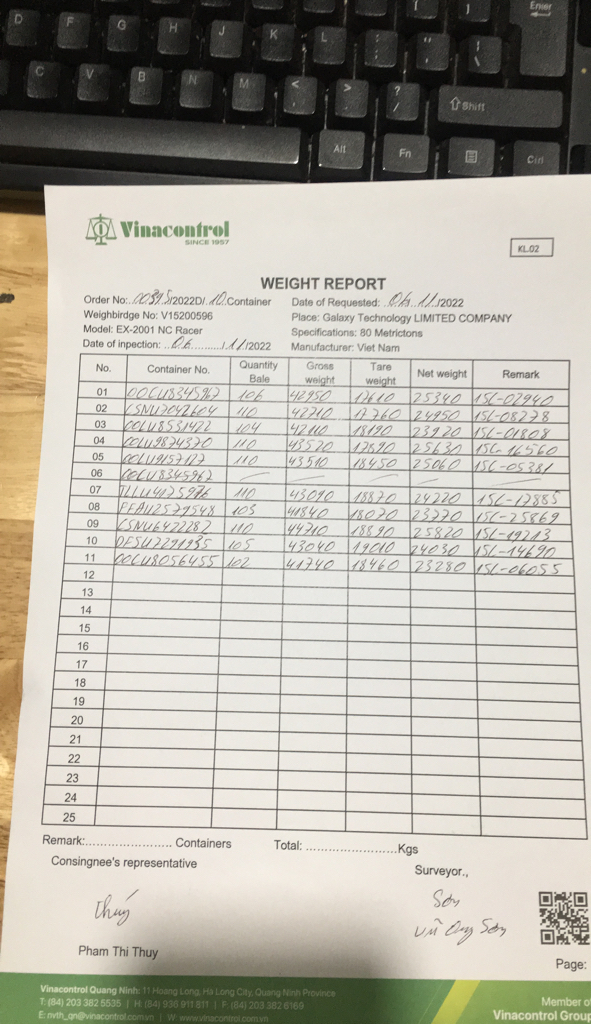 Enter
D F G H J K L : ; " '
C V B N M < , > . ? / Shift
Alt Fn Ctrl
Vinacontrol
SINCE 1957
KL.02
WEIGHT REPORT
Order No: 00395/2022D/ 10 Container Date of Requested: 06 11/2022
Weighbirdge No: V15200596 Place: Galaxy Technology LIMITED COMPANY
Model: EX-2001 NC Racer Specifications: 80 Metrictons
Date of inpection: 06 / 11/2022 Manufacturer: Viet Nam
No. Container No. Quantity Bale Gross weight Tare weight Net weight Remark
01 OOCU8345967 106 42950 17610 25340 15C-02940
02 CSNU7042604 110 42710 17760 24950 15C-08278
03 OOLU8531422 104 42110 18190 23920 15C-01808
04 OOLU9874370 110 43520 17890 25630 15C-16560
05 OOLU9157177 110 43510 18450 25060 15C-05381
06 OOCU8345967
07 TLLU4175976 110 43090 18870 24220 15C-17885
08 103 41840 18070 23770 15C-25869
09 CSNU6422287 110 44710 18890 25820 15C-19213
10 DFSU7291935 105 43040 19010 24030 15C-14690
11 OOCU8056455 102 41740 18460 23280 15C-06055
12
13
14
15
16
17
18
19
20
21
22
23
24
25
Remark:...................... Containers Total: .......................Kgs
Consingnee's representative Surveyor.,
Thúy Sơn
Sơn
Pham Thi Thuy
Page:
Vinacontrol Quang Ninh: 11 Hoang Long, Ha Long City, Quang Ninh Province
T: (84) 203 382 5535 | H: (84) 936 911 811 | F: (84) 203 382 6169
E: nvth_qn@vinacontrol.com.vn | W: www.vinacontrol.com.vn
Member of
Vinacontrol Group